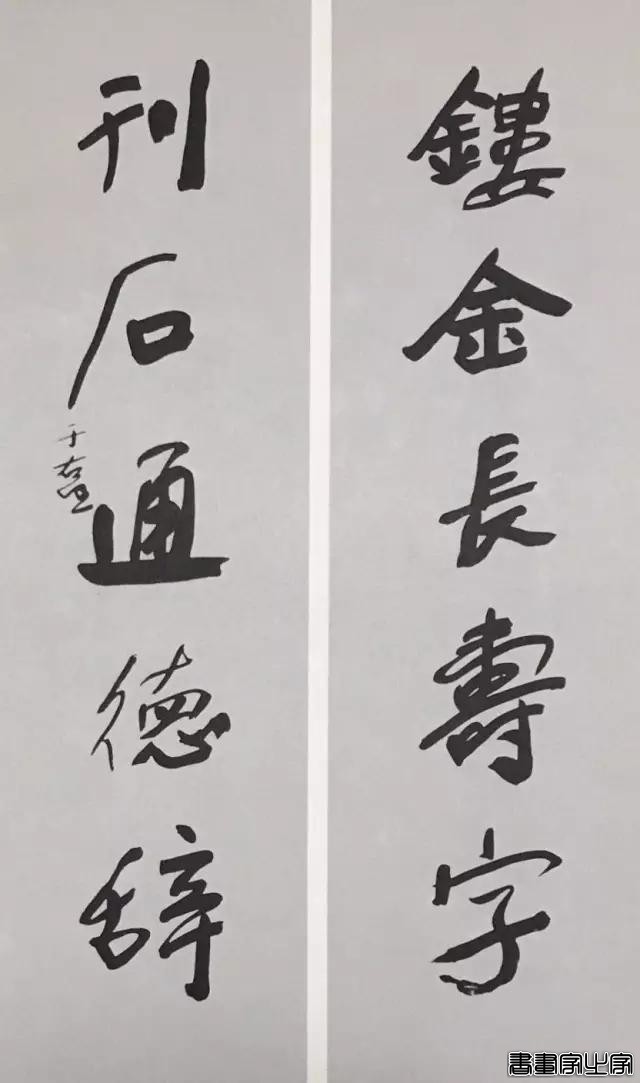 鏤金長壽字
刊石通德辞
于右任
書畫家之家